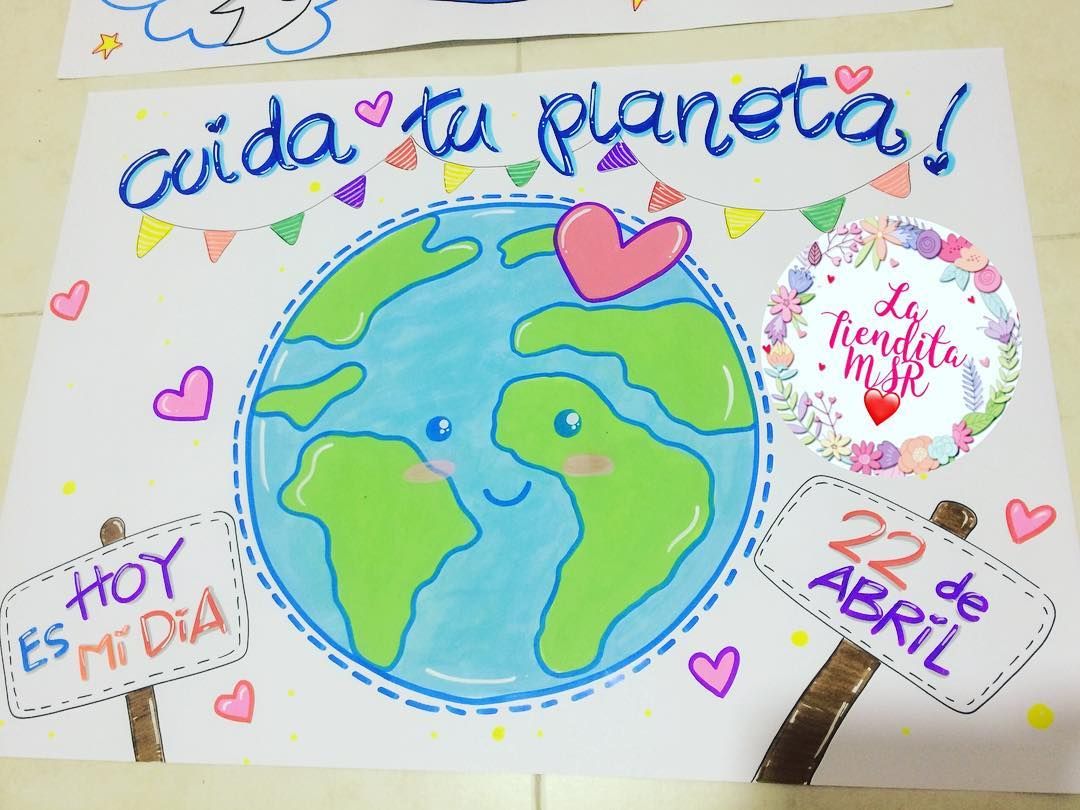 cuida tu planeta!
La
Tiendita
MSR
HOY
ES MI DIA
22 de
ABRIL